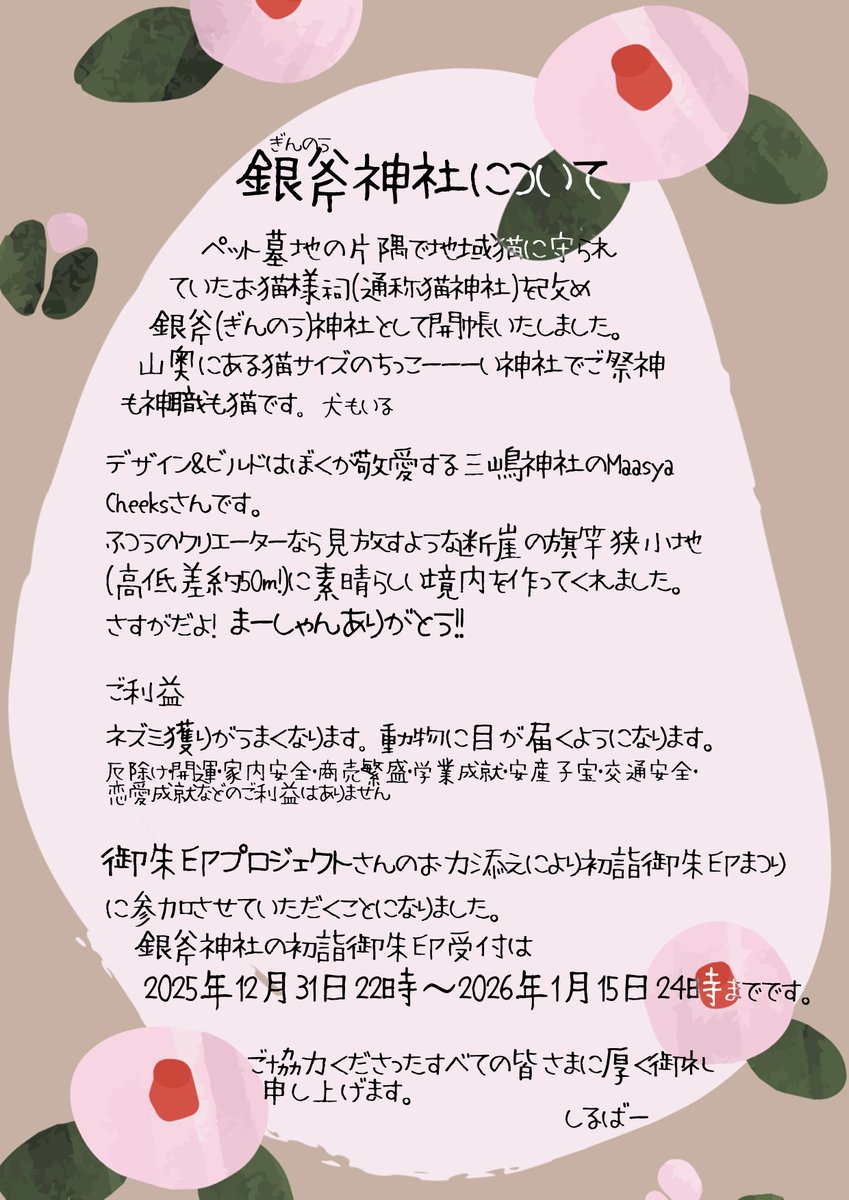 ぎんのう
銀斧神社について
ペット墓地の片隅で地域猫に守られ
ていたお猫様祠(通称猫神社)を改め
銀斧(ぎんのう)神社として開帳いたしました。
山奥にある猫サイズのちっこーーーい神社でご祭神
も神職も猫です。犬もいる
デザイン&ビルドはぼくが敬愛する三嶋神社のMaasya
Cheeksさんです。
ふつうのクリエーターなら見放すような断崖の旗竿狭小地
(高低差約50m!)に素晴らしい境内を作ってくれました。
さすがだよ!まーしゃんありがとう!!
ご利益
ネズミ獲りがうまくなります。動物に目が届くようになります。
厄除け・開運・家内安全・商売繁盛・学業成就・安産子宝・交通安全・
恋愛成就などのご利益はありません
御朱印プロジェクトさんのお力添えにより初詣御朱印まつり
に参加させていただくことになりました。
銀斧神社の初詣御朱印受付は
2025年12月31日22時～2026年1月15日24時までです。
ご協力くださったすべての皆さまに厚く御礼
申し上げます。
しるばー